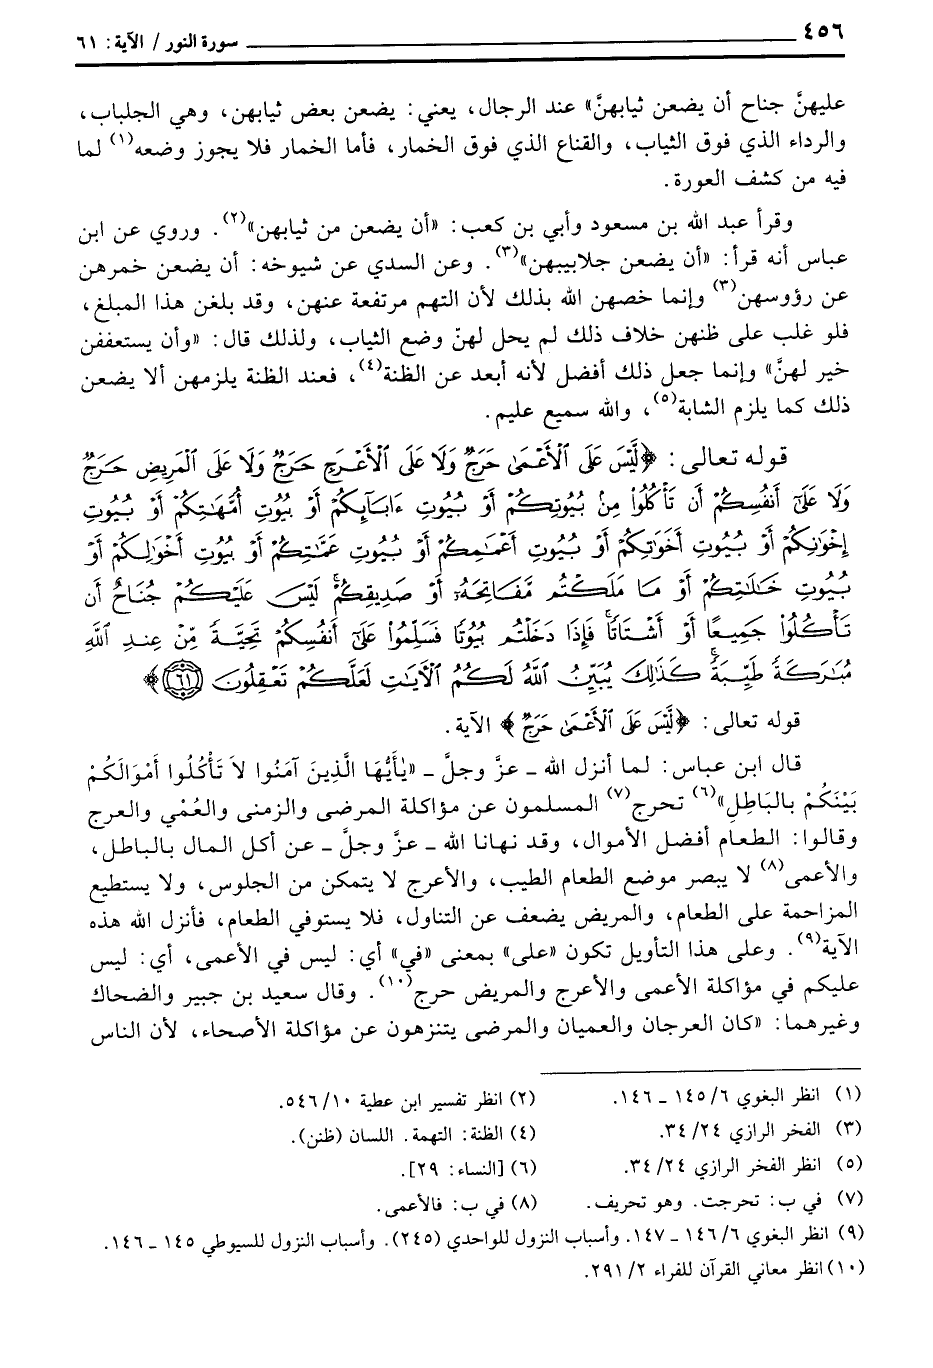 ٤٥٦ سورة النور / الآية: ٦١
عليهنَّ جناح أن يضعن ثيابهنَّ» عند الرجال، يعني: يضعن بعض ثيابهن، وهي الجلباب،
والرداء الذي فوق الثياب، والقناع الذي فوق الخمار، فأما الخمار فلا يجوز وضعه(١) لما
فيه من كشف العورة.
وقرأ عبد الله بن مسعود وأبي بن كعب: «أن يضعن من ثيابهن»(٢). وروي عن ابن
عباس أنه قرأ: «أن يضعن جلابيبهن»(٣). وعن السدي عن شيوخه: أن يضعن خمرهن
عن رؤوسهن(٣) وإنما خصهن الله بذلك لأن التهم مرتفعة عنهن، وقد بلغن هذا المبلغ،
فلو غلب على ظنهن خلاف ذلك لم يحل لهنّ وضع الثياب، ولذلك قال: «وأن يستعففن
خير لهنَّ» وإنما جعل ذلك أفضل لأنه أبعد عن الظنة(٤)، فعند الظنة يلزمهن ألا يضعن
ذلك كما يلزم الشابة(٥)، والله سميع عليم.
قوله تعالى: ﴿لَّيْسَ عَلَى ٱلْأَعْمَىٰ حَرَجٌ وَلَا عَلَى ٱلْأَعْرَجِ حَرَجٌ وَلَا عَلَى ٱلْمَرِيضِ حَرَجٌ
وَلَا عَلَىٰٓ أَنفُسِكُمْ أَن تَأْكُلُوا۟ مِنۢ بُيُوتِكُمْ أَوْ بُيُوتِ ءَابَآئِكُمْ أَوْ بُيُوتِ أُمَّهَٰتِكُمْ أَوْ بُيُوتِ
إِخْوَٰنِكُمْ أَوْ بُيُوتِ أَخَوَٰتِكُمْ أَوْ بُيُوتِ أَعْمَٰمِكُمْ أَوْ بُيُوتِ عَمَّٰتِكُمْ أَوْ بُيُوتِ أَخْوَٰلِكُمْ أَوْ
بُيُوتِ خَٰلَٰتِكُمْ أَوْ مَا مَلَكْتُم مَّفَاتِحَهُۥٓ أَوْ صَدِيقِكُمْ ۚ لَيْسَ عَلَيْكُمْ جُنَاحٌ أَن
تَأْكُلُوا۟ جَمِيعًا أَوْ أَشْتَاتًا ۚ فَإِذَا دَخَلْتُم بُيُوتًا فَسَلِّمُوا۟ عَلَىٰٓ أَنفُسِكُمْ تَحِيَّةً مِّنْ عِندِ ٱللَّهِ
مُبَٰرَكَةً طَيِّبَةً ۚ كَذَٰلِكَ يُبَيِّنُ ٱللَّهُ لَكُمُ ٱلْأَيَٰتِ لَعَلَّكُمْ تَعْقِلُونَ ٦١﴾
قوله تعالى: ﴿لَّيْسَ عَلَى ٱلْأَعْمَىٰ حَرَجٌ﴾ الآية.
قال ابن عباس: لما أنزل الله ـ عزَّ وجلَّ ـ «يٰأَيُّهَا الَّذِينَ آمَنُوا لاَ تَأْكُلُوا أَمْوَالَكُمْ
بَيْنَكُمْ بالبَاطِلِ»(٦) تحرج(٧) المسلمون عن مؤاكلة المرضى والزمنى والعُمْي والعرج
وقالوا: الطعام أفضل الأموال، وقد نهانا الله ـ عزَّ وجلَّ ـ عن أكل المال بالباطل،
والأعمى(٨) لا يبصر موضع الطعام الطيب، والأعرج لا يتمكن من الجلوس، ولا يستطيع
المزاحمة على الطعام، والمريض يضعف عن التناول، فلا يستوفي الطعام، فأنزل الله هذه
الآية(٩). وعلى هذا التأويل تكون «على» بمعنى «في» أي: ليس في الأعمى، أي: ليس
عليكم في مؤاكلة الأعمى والأعرج والمريض حرج(١٠). وقال سعيد بن جبير والضحاك
وغيرهما: «كان العرجان والعميان والمرضى يتنزهون عن مؤاكلة الأصحاء، لأن الناس
(١) انظر البغوي ٦/ ١٤٥ ـ ١٤٦. (٢) انظر تفسير ابن عطية ١٠/ ٥٤٦.
(٣) الفخر الرازي ٢٤/ ٣٤. (٤) الظنة: التهمة. اللسان (ظنن).
(٥) انظر الفخر الرازي ٢٤/ ٣٤. (٦) [النساء: ٢٩].
(٧) في ب: تحرجت. وهو تحريف. (٨) في ب: فالأعمى.
(٩) انظر البغوي ٦/ ١٤٦ ـ ١٤٧. وأسباب النزول للواحدي (٢٤٥). وأسباب النزول للسيوطي ١٤٥ ـ ١٤٦.
(١٠) انظر معاني القرآن للفراء ٢/ ٢٩١.